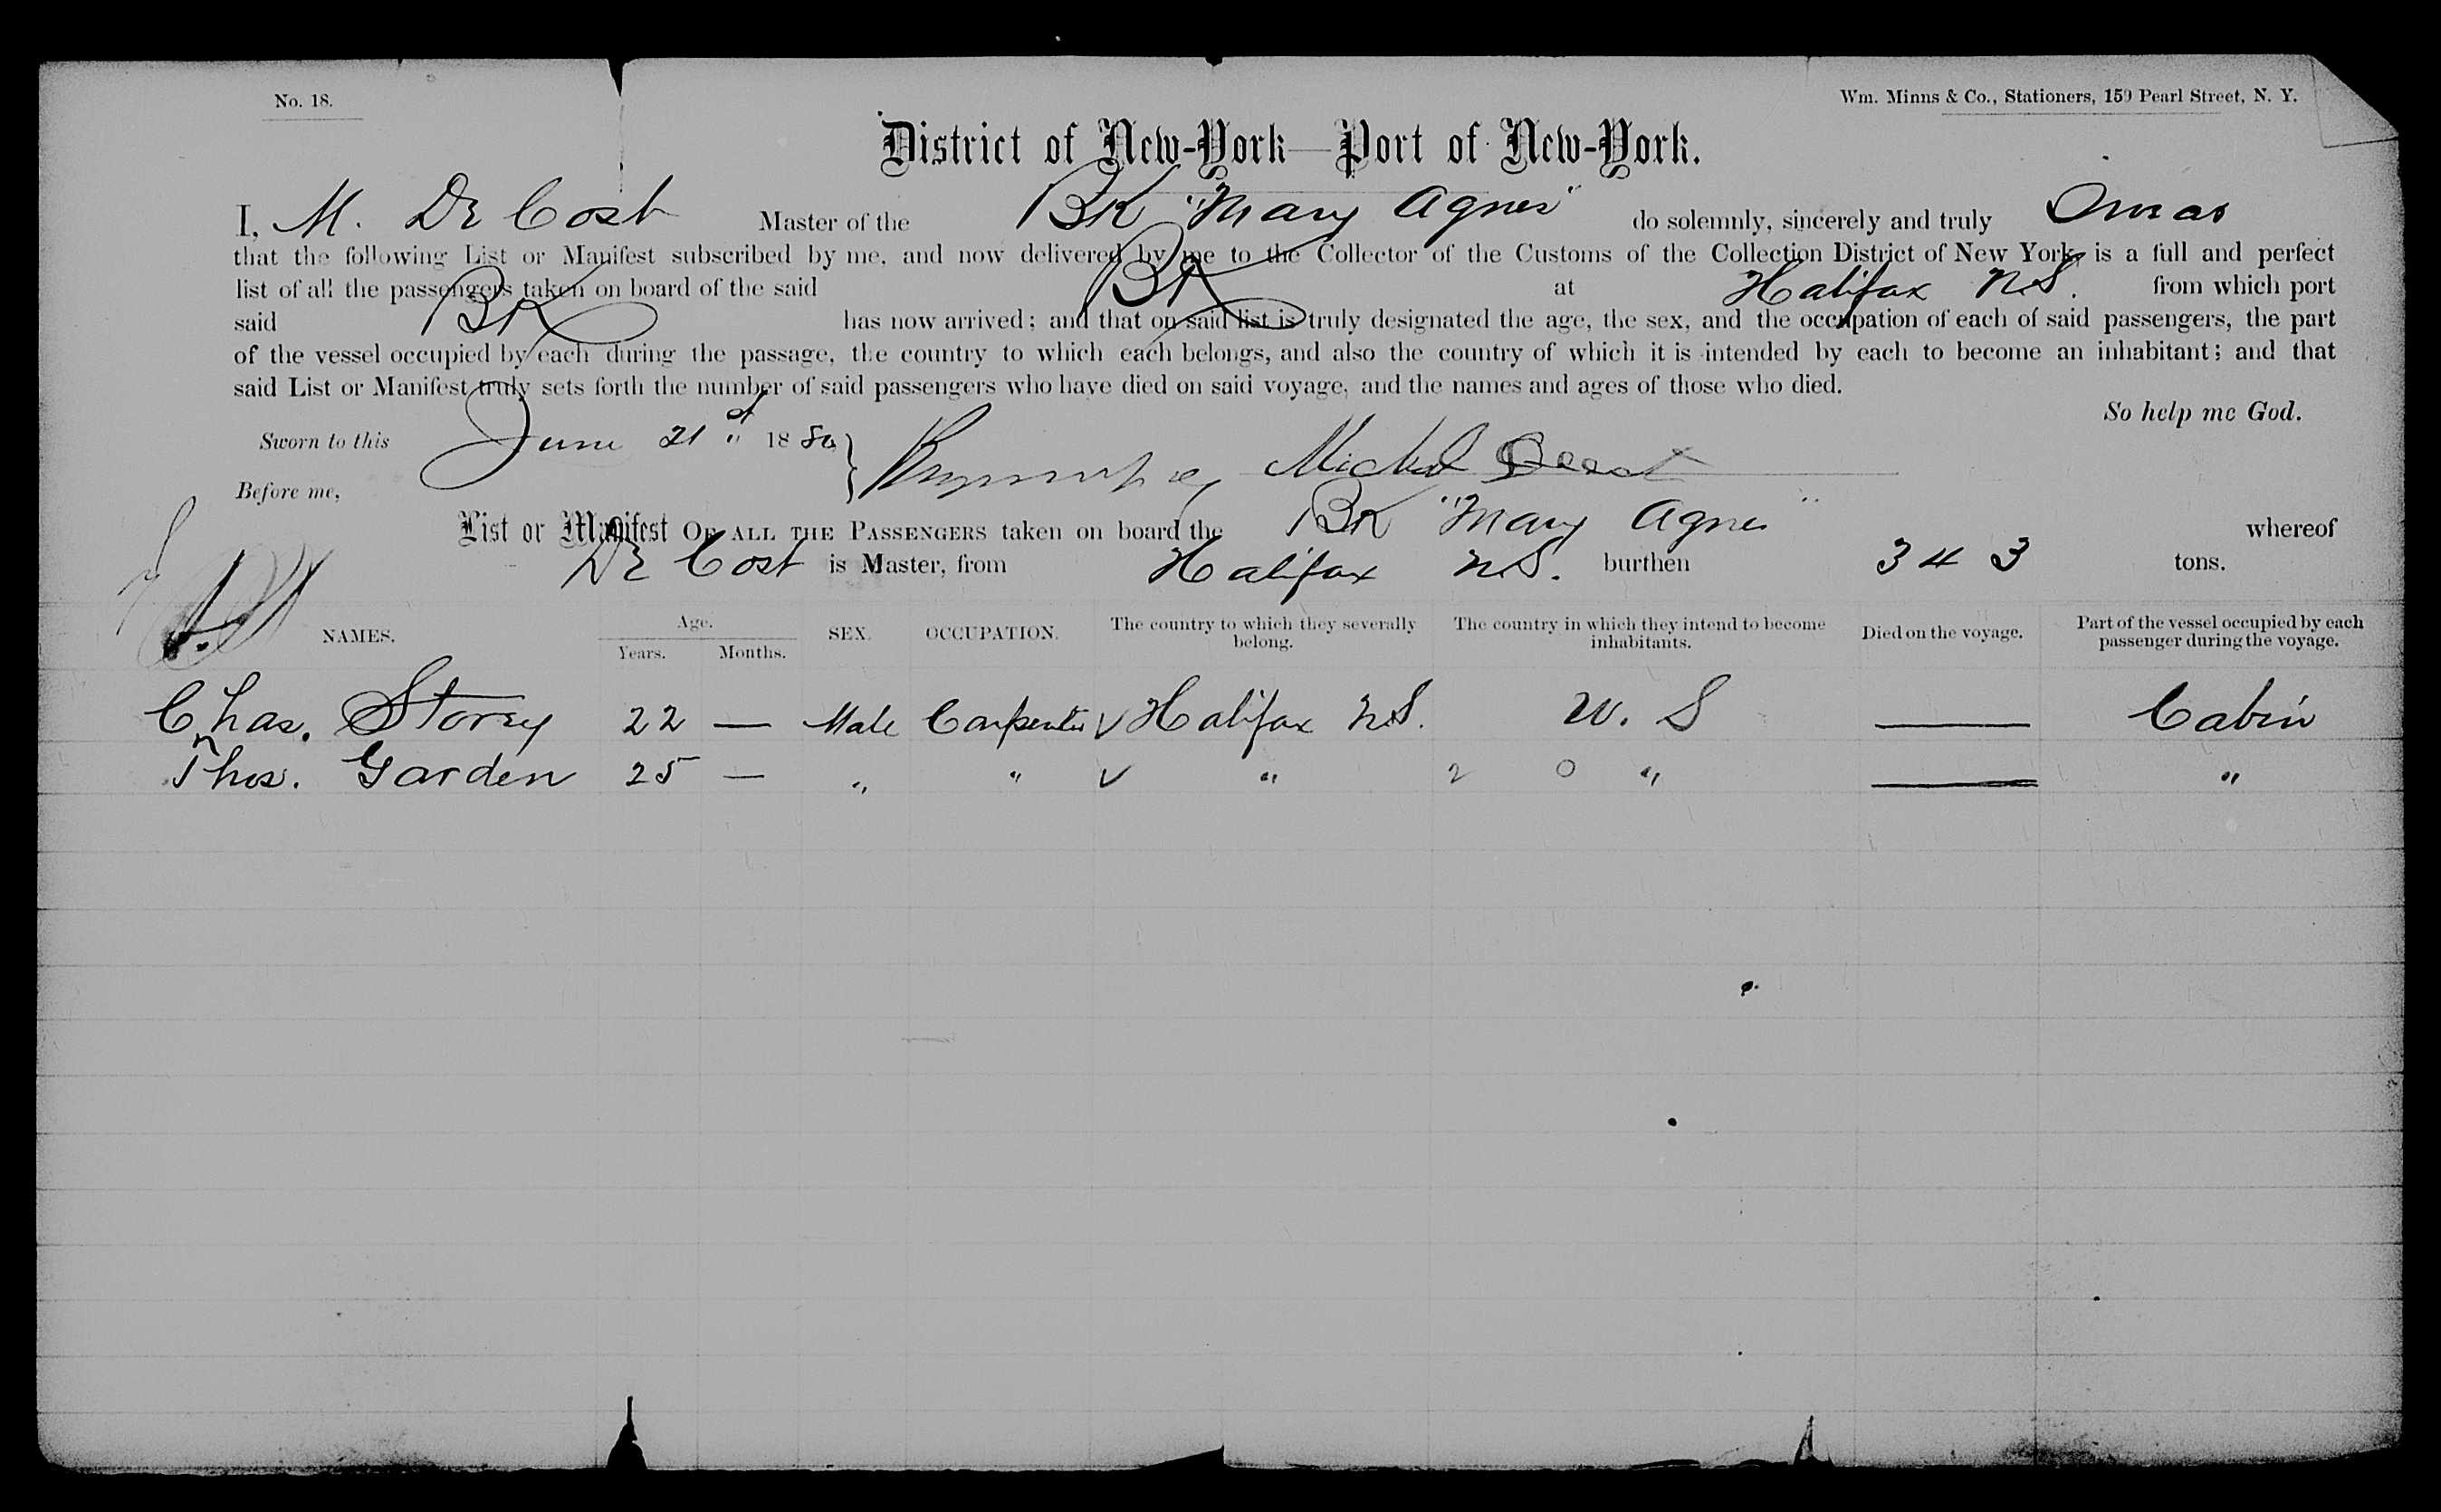 No. 18.
Wm. Minns & Co., Stationers, 159 Pearl Street, N. Y.
District of New-York—Port of New-York.
I, M. De Cost Master of the BK "Mary Agnes" do solemnly, sincerely and truly Swear
that the following List or Manifest subscribed by me, and now delivered by me to the Collector of the Customs of the Collection District of New York, is a full and perfect
list of all the passengers taken on board of the said BK at Halifax N.S. from which port
said BK has now arrived; and that on said list is truly designated the age, the sex, and the occupation of each of said passengers, the part
of the vessel occupied by each during the passage, the country to which each belongs, and also the country of which it is intended by each to become an inhabitant; and that
said List or Manifest truly sets forth the number of said passengers who have died on said voyage, and the names and ages of those who died.
So help me God.
Sworn to this June 21st 1880
Before me,
List or Manifest OF ALL THE PASSENGERS taken on board the BK "Mary Agnes" whereof
De Cost is Master, from Halifax N.S. burthen 343 tons.
NAMES. Age. Years. Months. SEX. OCCUPATION. The country to which they severally belong. The country in which they intend to become inhabitants. Died on the voyage. Part of the vessel occupied by each passenger during the voyage.
Chas. Storey 22 — Male Carpenter √ Halifax N.S. U. S — Cabin
Thos. Garden 25 — " " √ " 2 0 " — "